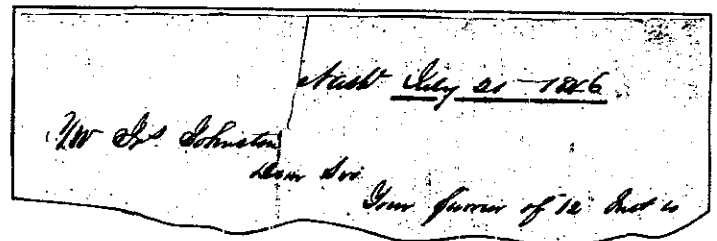 Nashl July 21 1846
Mr Js. Johnston
Dear Sir
Your favour of 12 Inst is